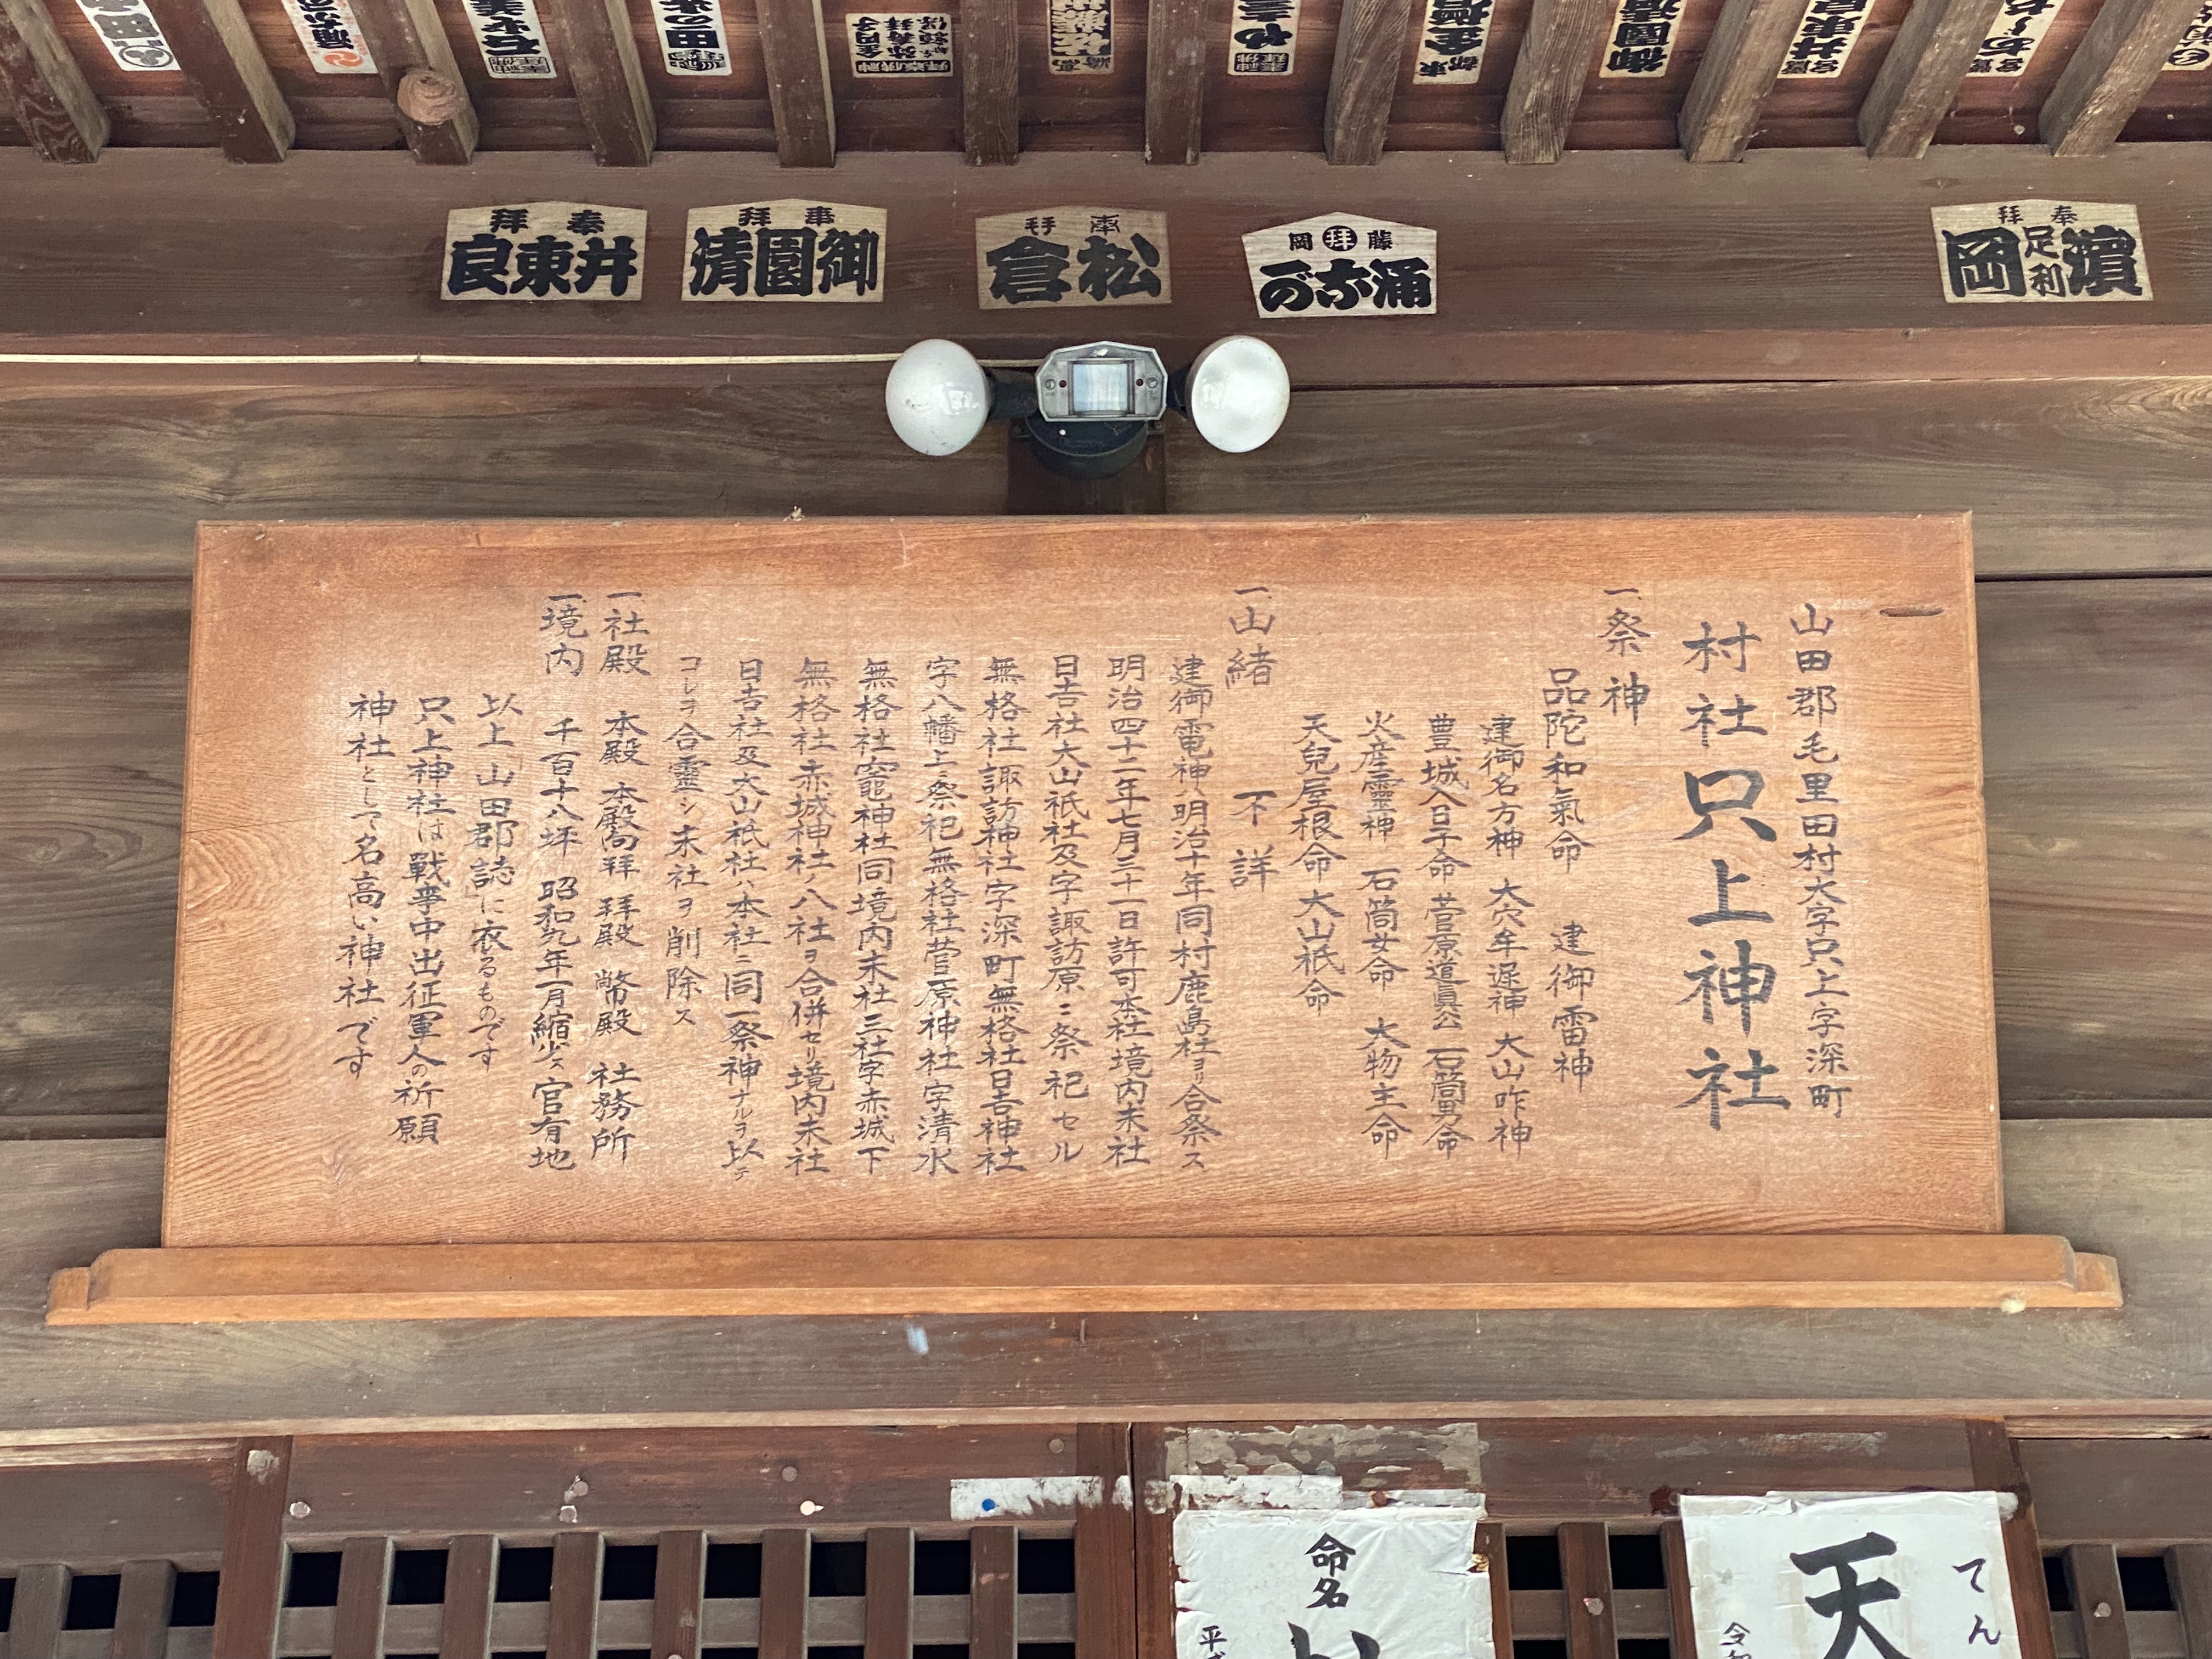 奉拝
濱足利岡
藤拝岡
涌井の
奉拝
松倉
奉拝
御園清
奉拝
井東良
一
山田郡毛里田村大字只上字深町
村社只上神社
一、祭神
品陀和氣命 建御雷神
建御名方神 大穴牟遅神 大山咋神
豊城入日子命 菅原道眞公 石筒男命
火産霊神 石筒女命 大物主命
天兒屋根命 大山祇命
一、山緒 不詳
建御電神ハ明治十年同村鹿島社ヨリ合祭ス
明治四十二年七月三十一日許可本社境内末社
日吉社大山祇社及字諏訪原ニ祭祀セル
無格社諏訪神社字深町無格社日吉神社
字八幡上ニ祭祀無格社菅原神社字清水
無格社竈神社同境内末社三社字赤城下
無格社赤城神社ノ八社ヲ合併セリ境内末社
日吉社及大山祇社ハ本社ニ同一祭神ナルヲ以テ
コレヲ合靈シ末社ヲ削除ス
一、社殿 本殿 本殿向拝 拝殿 幣殿 社務所
一、境内 千百十八坪 昭和九年一月縮少ス官有地
以上「山田郡誌」に衣るものです
只上神社は戦争中出征軍人の祈願
神社として名高い神社です
命名
てん
天